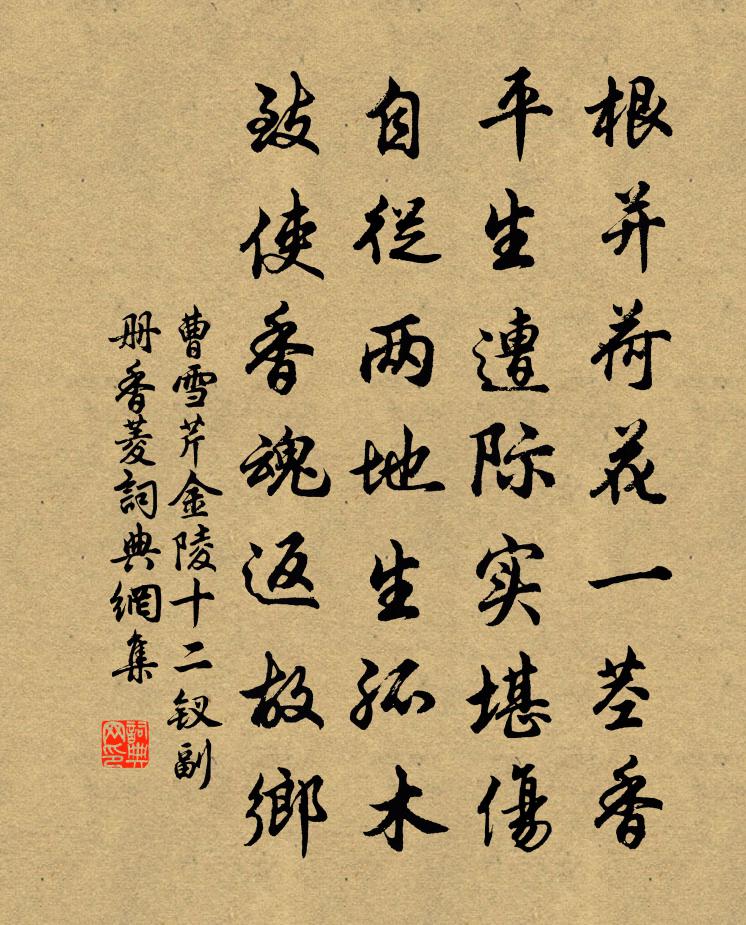 根并荷花一茎香
平生遭际实堪傷
自從两地生孤木
致使香魂返故鄉
曹雪芹金陵十二钗副
册香菱詞典網集
詞典网印